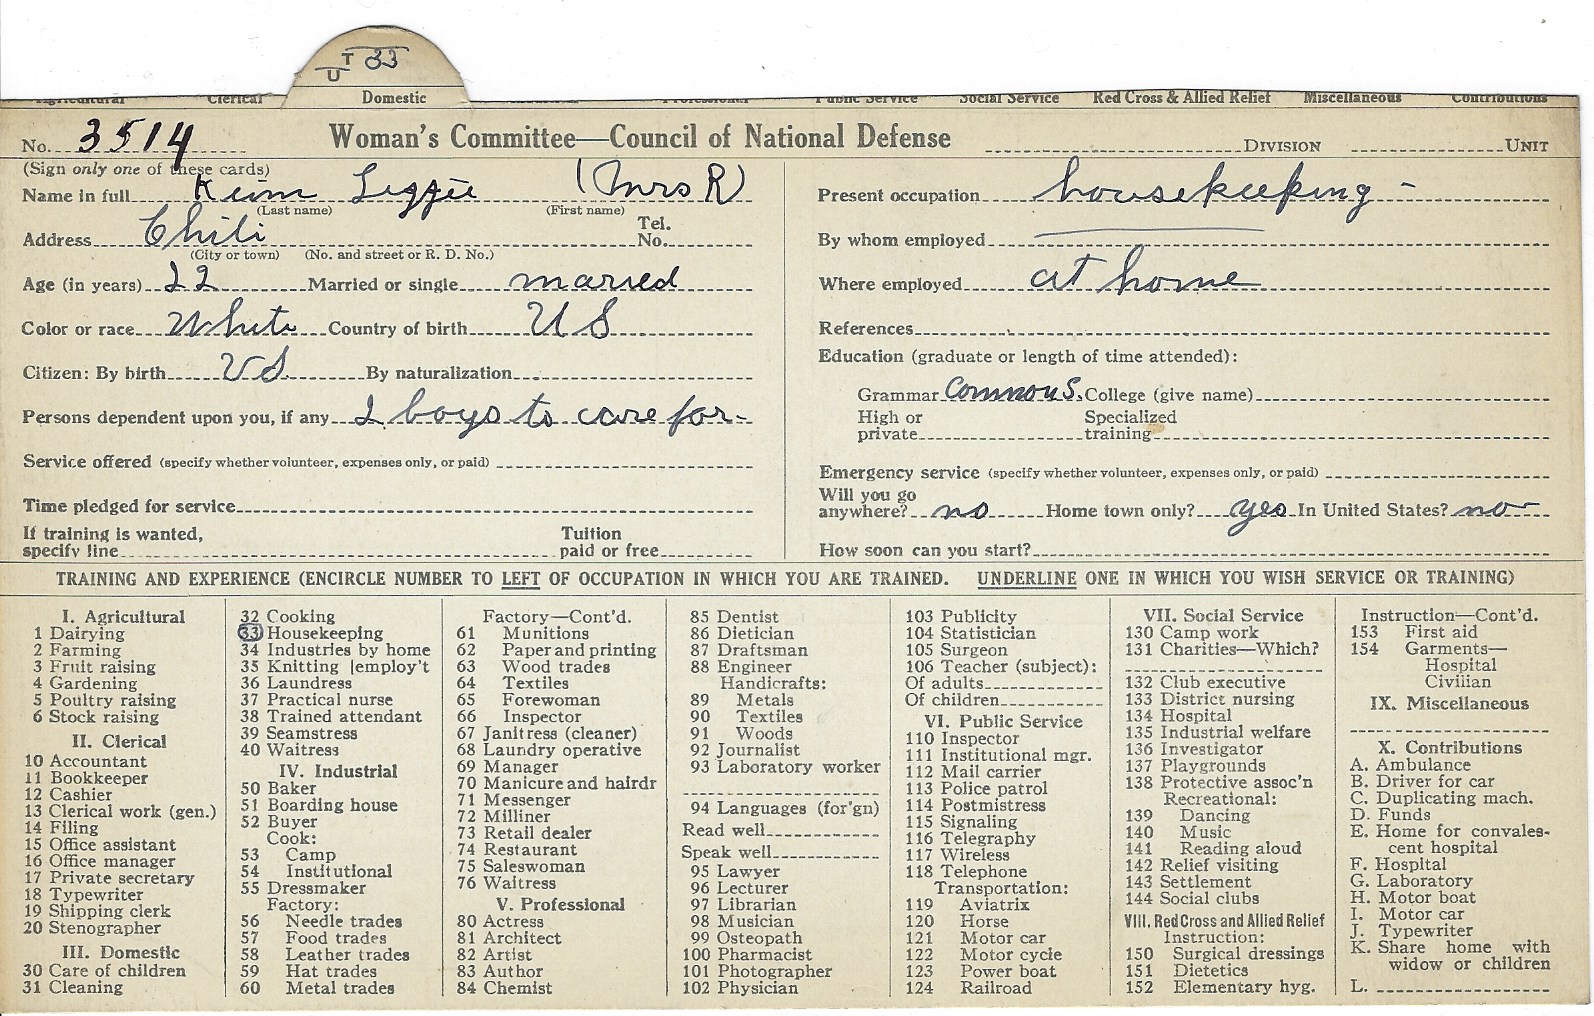 T 33
U
Agricultural Clerical Domestic Industrial Professional Public Service Social Service Red Cross & Allied Relief Miscellaneous Contributions
No. 3514 Woman's Committee—Council of National Defense DIVISION UNIT
(Sign only one of these cards)
Name in full Keim Lizzie (Mrs R)
(Last name) (First name)
Address Chili Tel. No.
(City or town) (No. and street or R. D. No.)
Age (in years) 22 Married or single married
Color or race White Country of birth US
Citizen: By birth US By naturalization
Persons dependent upon you, if any 2 boys to care for-
Service offered (specify whether volunteer, expenses only, or paid)
Time pledged for service
If training is wanted, Tuition
specify line paid or free
Present occupation housekeeping -
By whom employed
Where employed at home
References
Education (graduate or length of time attended):
Grammar Common S. College (give name)
High or Specialized
private training
Emergency service (specify whether volunteer, expenses only, or paid)
Will you go
anywhere? no Home town only? yes In United States? no
How soon can you start?
TRAINING AND EXPERIENCE (ENCIRCLE NUMBER TO LEFT OF OCCUPATION IN WHICH YOU ARE TRAINED. UNDERLINE ONE IN WHICH YOU WISH SERVICE OR TRAINING)
I. Agricultural
1 Dairying
2 Farming
3 Fruit raising
4 Gardening
5 Poultry raising
6 Stock raising
II. Clerical
10 Accountant
11 Bookkeeper
12 Cashier
13 Clerical work (gen.)
14 Filing
15 Office assistant
16 Office manager
17 Private secretary
18 Typewriter
19 Shipping clerk
20 Stenographer
III. Domestic
30 Care of children
31 Cleaning
32 Cooking
33 Housekeeping
34 Industries by home
35 Knitting [employ't
36 Laundress
37 Practical nurse
38 Trained attendant
39 Seamstress
40 Waitress
IV. Industrial
50 Baker
51 Boarding house
52 Buyer
Cook:
53 Camp
54 Institutional
55 Dressmaker
Factory:
56 Needle trades
57 Food trades
58 Leather trades
59 Hat trades
60 Metal trades
Factory—Cont'd.
61 Munitions
62 Paper and printing
63 Wood trades
64 Textiles
65 Forewoman
66 Inspector
67 Janitress (cleaner)
68 Laundry operative
69 Manager
70 Manicure and hairdr
71 Messenger
72 Milliner
73 Retail dealer
74 Restaurant
75 Saleswoman
76 Waitress
V. Professional
80 Actress
81 Architect
82 Artist
83 Author
84 Chemist
85 Dentist
86 Dietician
87 Draftsman
88 Engineer
Handicrafts:
89 Metals
90 Textiles
91 Woods
92 Journalist
93 Laboratory worker
94 Languages (for'gn)
Read well
Speak well
95 Lawyer
96 Lecturer
97 Librarian
98 Musician
99 Osteopath
100 Pharmacist
101 Photographer
102 Physician
103 Publicity
104 Statistician
105 Surgeon
106 Teacher (subject):
Of adults
Of children
VI. Public Service
110 Inspector
111 Institutional mgr.
112 Mail carrier
113 Police patrol
114 Postmistress
115 Signaling
116 Telegraphy
117 Wireless
118 Telephone
Transportation:
119 Aviatrix
120 Horse
121 Motor car
122 Motor cycle
123 Power boat
124 Railroad
VII. Social Service
130 Camp work
131 Charities—Which?
132 Club executive
133 District nursing
134 Hospital
135 Industrial welfare
136 Investigator
137 Playgrounds
138 Protective assoc'n
Recreational:
139 Dancing
140 Music
141 Reading aloud
142 Relief visiting
143 Settlement
144 Social clubs
VIII. Red Cross and Allied Relief
Instruction:
150 Surgical dressings
151 Dietetics
152 Elementary hyg.
Instruction—Cont'd.
153 First aid
154 Garments—
Hospital
Civilian
IX. Miscellaneous
X. Contributions
A. Ambulance
B. Driver for car
C. Duplicating mach.
D. Funds
E. Home for convales-
cent hospital
F. Hospital
G. Laboratory
H. Motor boat
I. Motor car
J. Typewriter
K. Share home with
widow or children
L.